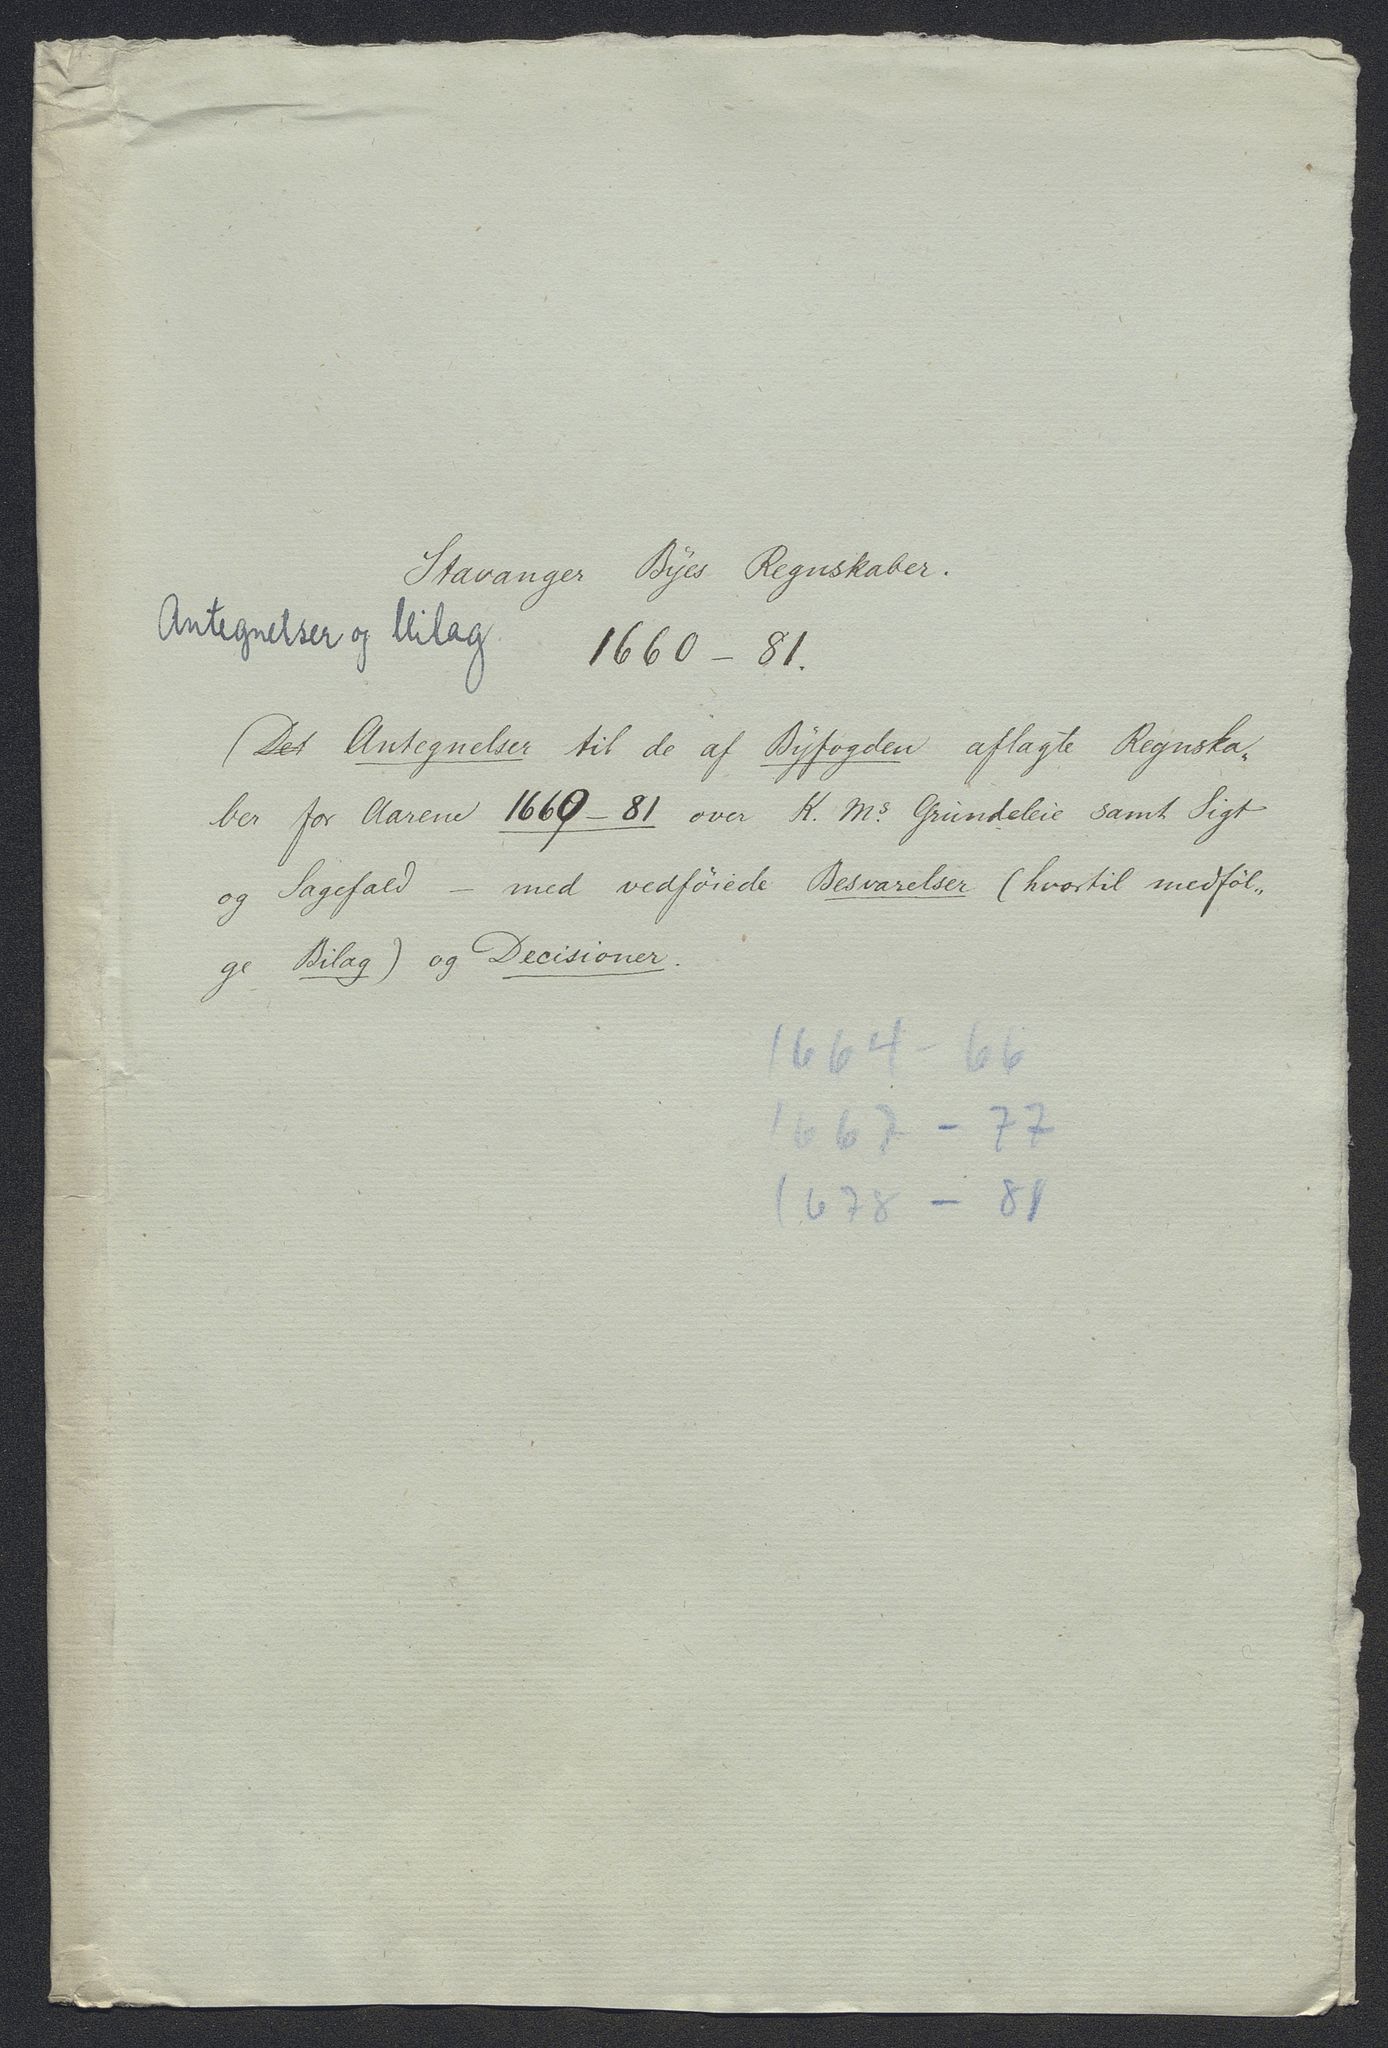 Stavanger Byes Regnskaber.
Antegnelser og Bilag
1660 - 81.
(Det Antegnelser til de af Byfogden aflagte Regnska„
ber for Aarene 1660 - 81 over K. Ms. Grundeleie samt Sigt
og Sagefald - med vedføiede Besvarelser (hvortil medføl„
ge Bilag) og Decisioner.
1664 - 66
1667 - 77
1678 - 81